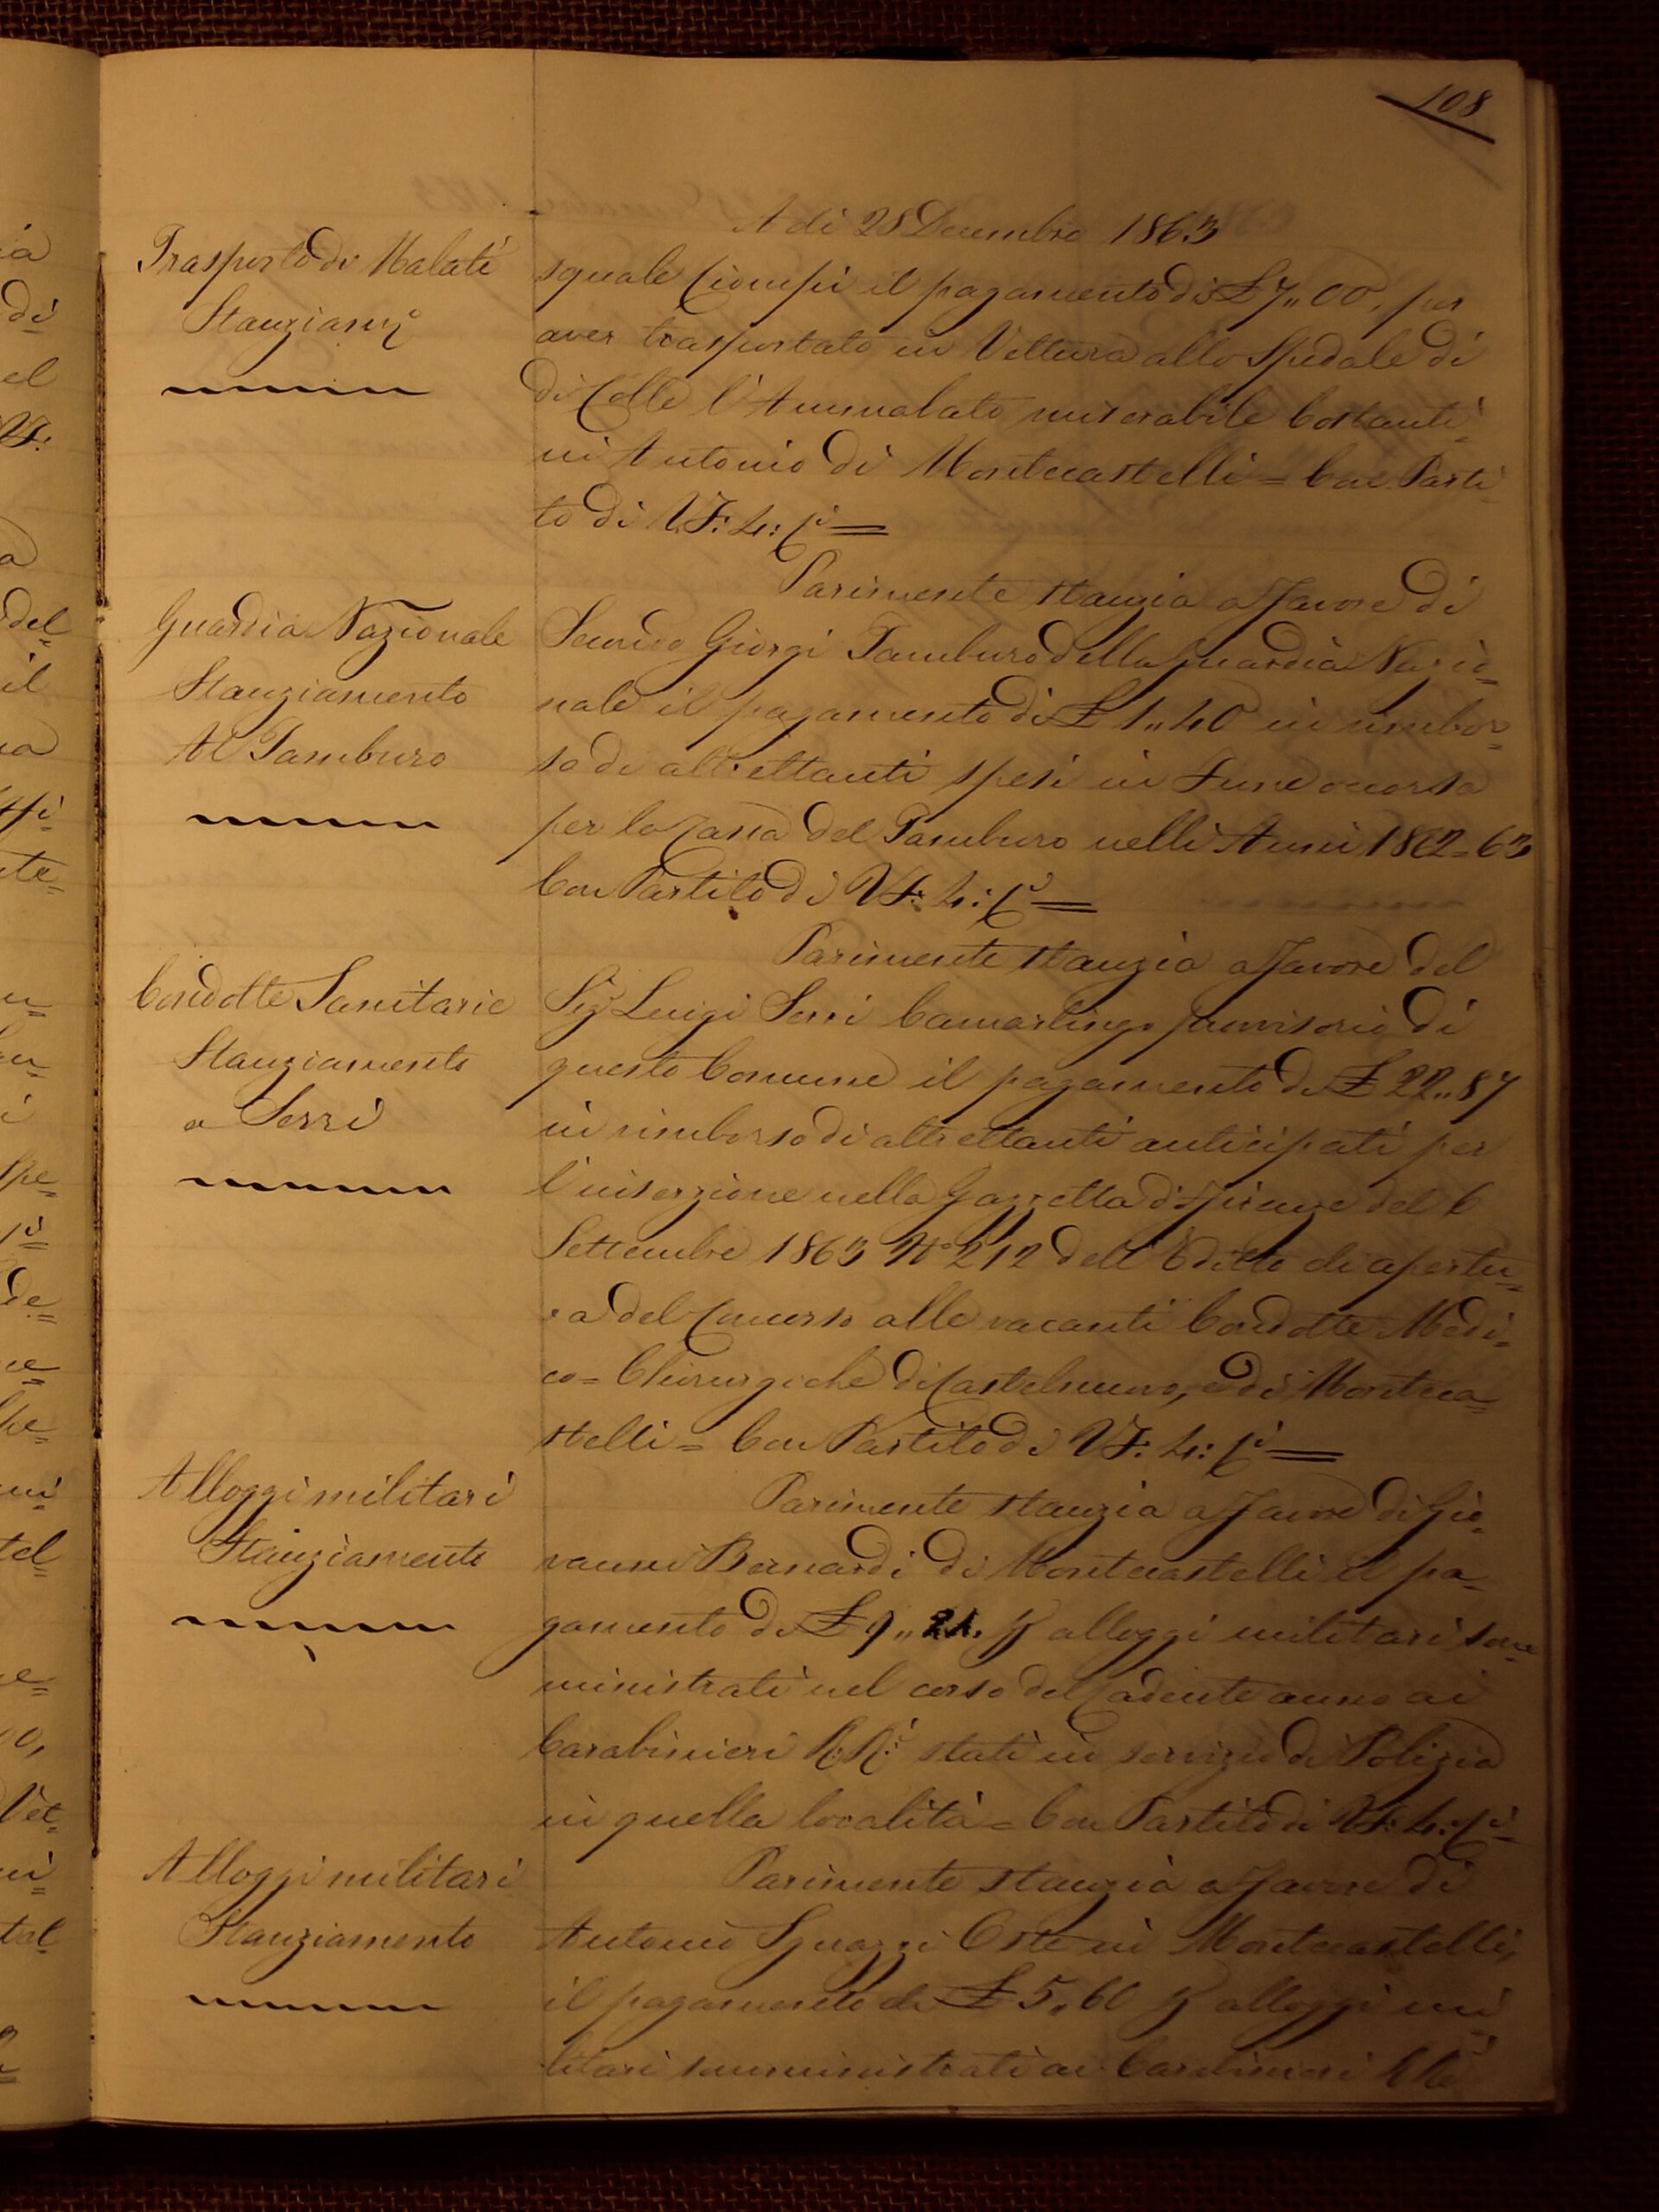 108
A dì 28 Decembre 1863
Trasporto di Malati
Stanziamº
squale Ciompi il pagamento di £ 7,, 00, per
aver trasportato in Vettura allo Spedale di
di Colle l'Ammalato miserabile Costanti=
ni Antonio di Montecastelli = Con Parti=
to di VF: 4: Ci =
Guardia Nazionale
Stanziamento
Al Tamburo
Parimente stanzia a favore di
Giorgi Tamburo della Guardia Nazio=
nale il pagamento di £ 1,, 40 in rimbor=
so di altrettanti spesi in Fune occorsa
per la Cassa del Tamburo nelli Anni 1862=63
Con Partito di VF: 4: Ci =
Condotte Sanitarie
Stanziamento
a Serri
Parimente stanzia a favore del
Sigr Luigi Serri Camarlingo provvisorio di
questo Comune il pagamento di £ 22,, 87
in rimborso di altrettanti anticipati per
l'inserzione nella Gazzetta di Firenze del 6
Settembre 1863 Nº 212 dell'Editto di apertu=
ra del Concorso alle vacanti Condotte Medi=
co=Chirurgiche di Castelnuovo, e di Monteca=
stelli = Con Partito di VF: 4: Ci =
Alloggi militari
Stanziamento
Parimente stanzia a favore di Gio=
vanni Bernardi di Montecastelli il pa=
gamento di £ 9,, 24. p alloggi militari som=
ministrati nel corso del Cadente anno ai
Carabinieri R.R.i stati in servizio di Polizia
in quella località = Con Partito di VF: 4: Ci =
Alloggi militari
Stanziamento
Parimente stanzia a favore di
Antonio Sguazzi Oste in Montecastelli,
il pagamento di £ 5,, 60 p alloggi mi=
litari somministrati ai Carabinieri RRi